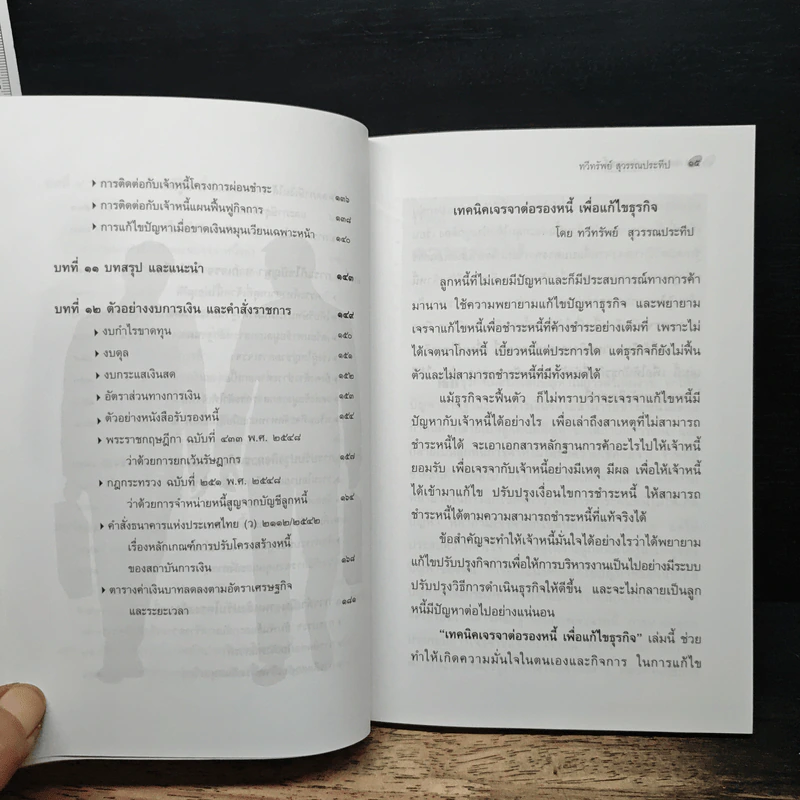 การติดต่อกับเจ้าหนี้โครงการผ่อนชำระ ๑๓๖
การติดต่อกับเจ้าหนี้แผนฟื้นฟูกิจการ ๑๓๘
การแก้ไขปัญหาเมื่อขาดเงินหมุนเวียนเฉพาะหน้า ๑๔๐
บทที่ ๑๑ บทสรุป และแนะนำ ๑๔๓
บทที่ ๑๒ ตัวอย่างงบการเงิน และคำสั่งราชการ ๑๔๙
งบกำไรขาดทุน ๑๕๐
งบดุล ๑๕๑
งบกระแสเงินสด ๑๕๒
อัตราส่วนทางการเงิน ๑๕๓
ตัวอย่างหนังสือรับรองหนี้ ๑๕๔
พระราชกฤษฎีกา ฉบับที่ ๔๓๓ พ.ศ. ๒๕๔๘
ว่าด้วยการยกเว้นรัษฎากร ๑๕๗
กฎกระทรวง ฉบับที่ ๒๕๑ พ.ศ. ๒๕๔๘
ว่าด้วยการจำหน่ายหนี้สูญจากบัญชีลูกหนี้ ๑๖๔
คำสั่งธนาคารแห่งประเทศไทย (ว) ๒๑๑๒/๒๕๔๒
เรื่องหลักเกณฑ์การปรับโครงสร้างหนี้
ของสถาบันการเงิน ๑๖๘
ตารางค่าเงินบาทลดลงตามอัตราเศรษฐกิจ
และระยะเวลา ๑๘๑
ทวีทรัพย์ สุวรรณประทีป ๑๕
เทคนิคเจรจาต่อรองหนี้ เพื่อแก้ไขธุรกิจ
โดย ทวีทรัพย์ สุวรรณประทีป
ลูกหนี้ที่ไม่เคยมีปัญหาและก็มีประสบการณ์ทางการค้า
มานาน ใช้ความพยายามแก้ไขปัญหาธุรกิจ และพยายาม
เจรจาแก้ไขหนี้เพื่อชำระหนี้ที่ค้างชำระอย่างเต็มที่ เพราะไม่
ได้เจตนาโกงหนี้ เบี้ยวหนี้แต่ประการใด แต่ธุรกิจก็ยังไม่ฟื้น
ตัวและไม่สามารถชำระหนี้ที่มีทั้งหมดได้
แม้ธุรกิจจะฟื้นตัว ก็ไม่ทราบว่าจะเจรจาแก้ไขหนี้มี
ปัญหากับเจ้าหนี้ได้อย่างไร เพื่อเล่าถึงสาเหตุที่ไม่สามารถ
ชำระหนี้ได้ จะเอาเอกสารหลักฐานการค้าอะไรไปให้เจ้าหนี้
ยอมรับ เพื่อเจรจากับเจ้าหนี้อย่างมีเหตุ มีผล เพื่อให้เจ้าหนี้
ได้เข้ามาแก้ไข ปรับปรุงเงื่อนไขการชำระหนี้ ให้สามารถ
ชำระหนี้ได้ตามความสามารถชำระหนี้ที่แท้จริงได้
ข้อสำคัญจะทำให้เจ้าหนี้มั่นใจได้อย่างไรว่าได้พยายาม
แก้ไขปรับปรุงกิจการเพื่อให้การบริหารงานเป็นไปอย่างมีระบบ
ปรับปรุงวิธีการดำเนินธุรกิจให้ดีขึ้น และจะไม่กลายเป็นลูก
หนี้มีปัญหาต่อไปอย่างแน่นอน
"เทคนิคเจรจาต่อรองหนี้ เพื่อแก้ไขธุรกิจ" เล่มนี้ ช่วย
ทำให้เกิดความมั่นใจในตนเองและกิจการ ในการแก้ไข